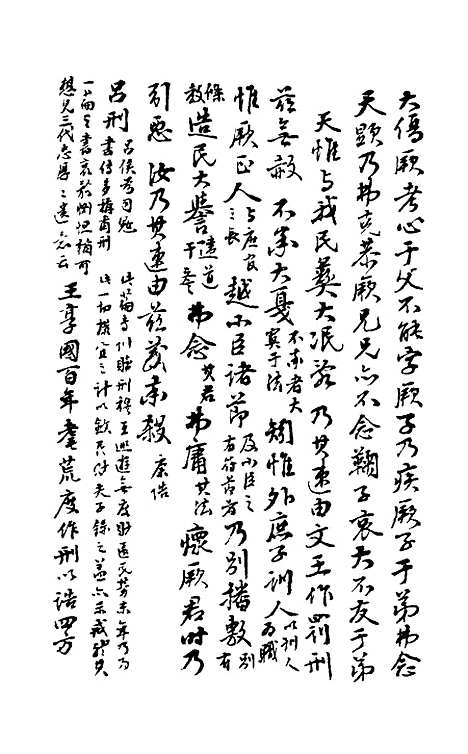 大傷厥考心于父不能字厥子乃疾厥子于弟弗念
天顯乃弗克恭厥兄兄亦不念鞠子哀大不友于弟
天惟与我民彝大泯亂乃其速由文王作罰刑
茲無赦 不率大戛 不率者大寘于法 矧惟外庶子訓人 以訓人为職
惟厥正人 与庶官之長 越小臣諸節 及小臣之有符节者 乃別播敷 別布
條教 造民大譽 違道干譽 弗念 其君 弗庸 其法 瘝厥君时乃
引惡 汝乃其速由茲義率殺 康誥
呂刑 吕侯为司寇書传多稱甫刑 此篇专训贖刑穆王巡遊無度财匱民劳末年乃为此一切權宜之計以斂民财夫子錄之蓋亦示戒然其
一篇之書哀矜惻怛猶可想见三代忠厚之遺意云 王享國百年耄荒度作刑以诰四方